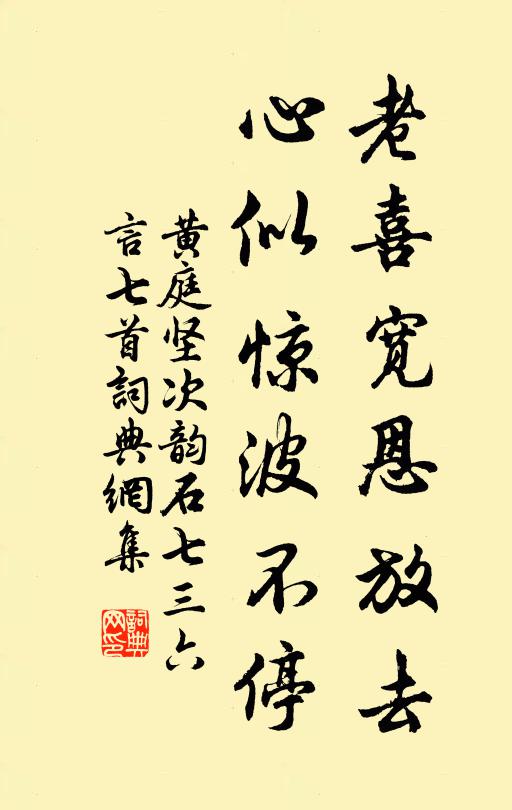 老喜寬恩放去
心似惊波不停
黄庭坚次韵石七三六
言七首詞典網集
詞典
网印